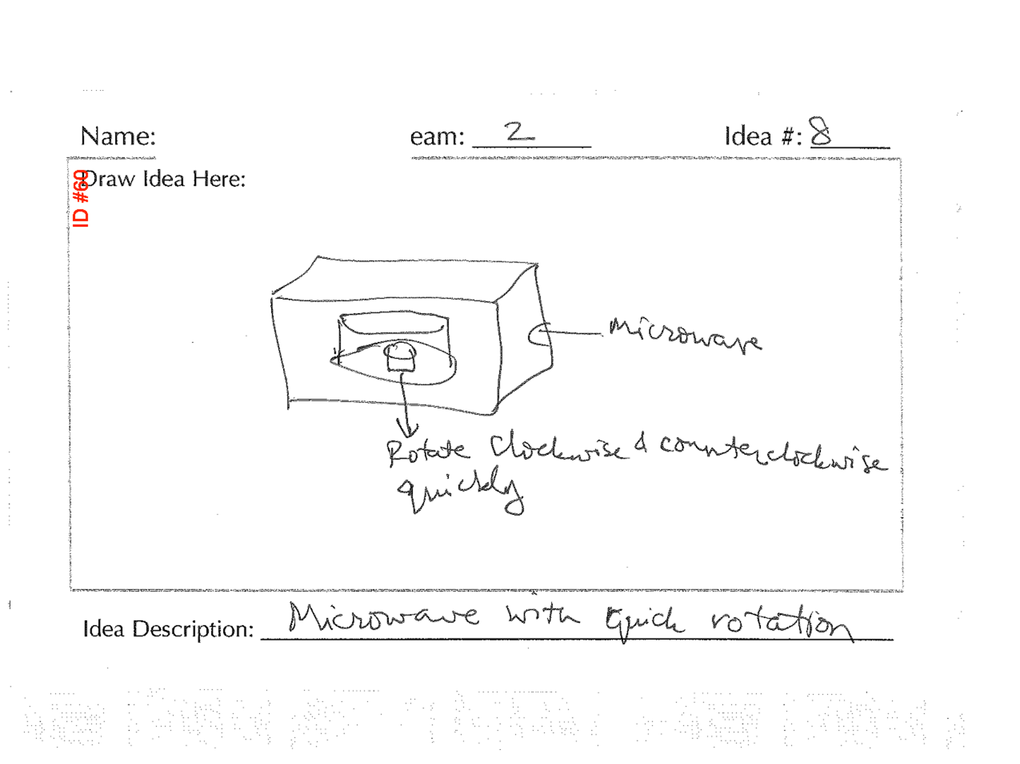 Name:
eam: 2
Idea #: 8
ID #69
Draw Idea Here:
Microwave
Rotate Clockwise & counterclockwise
quickly
Idea Description: Microwave with quick rotation